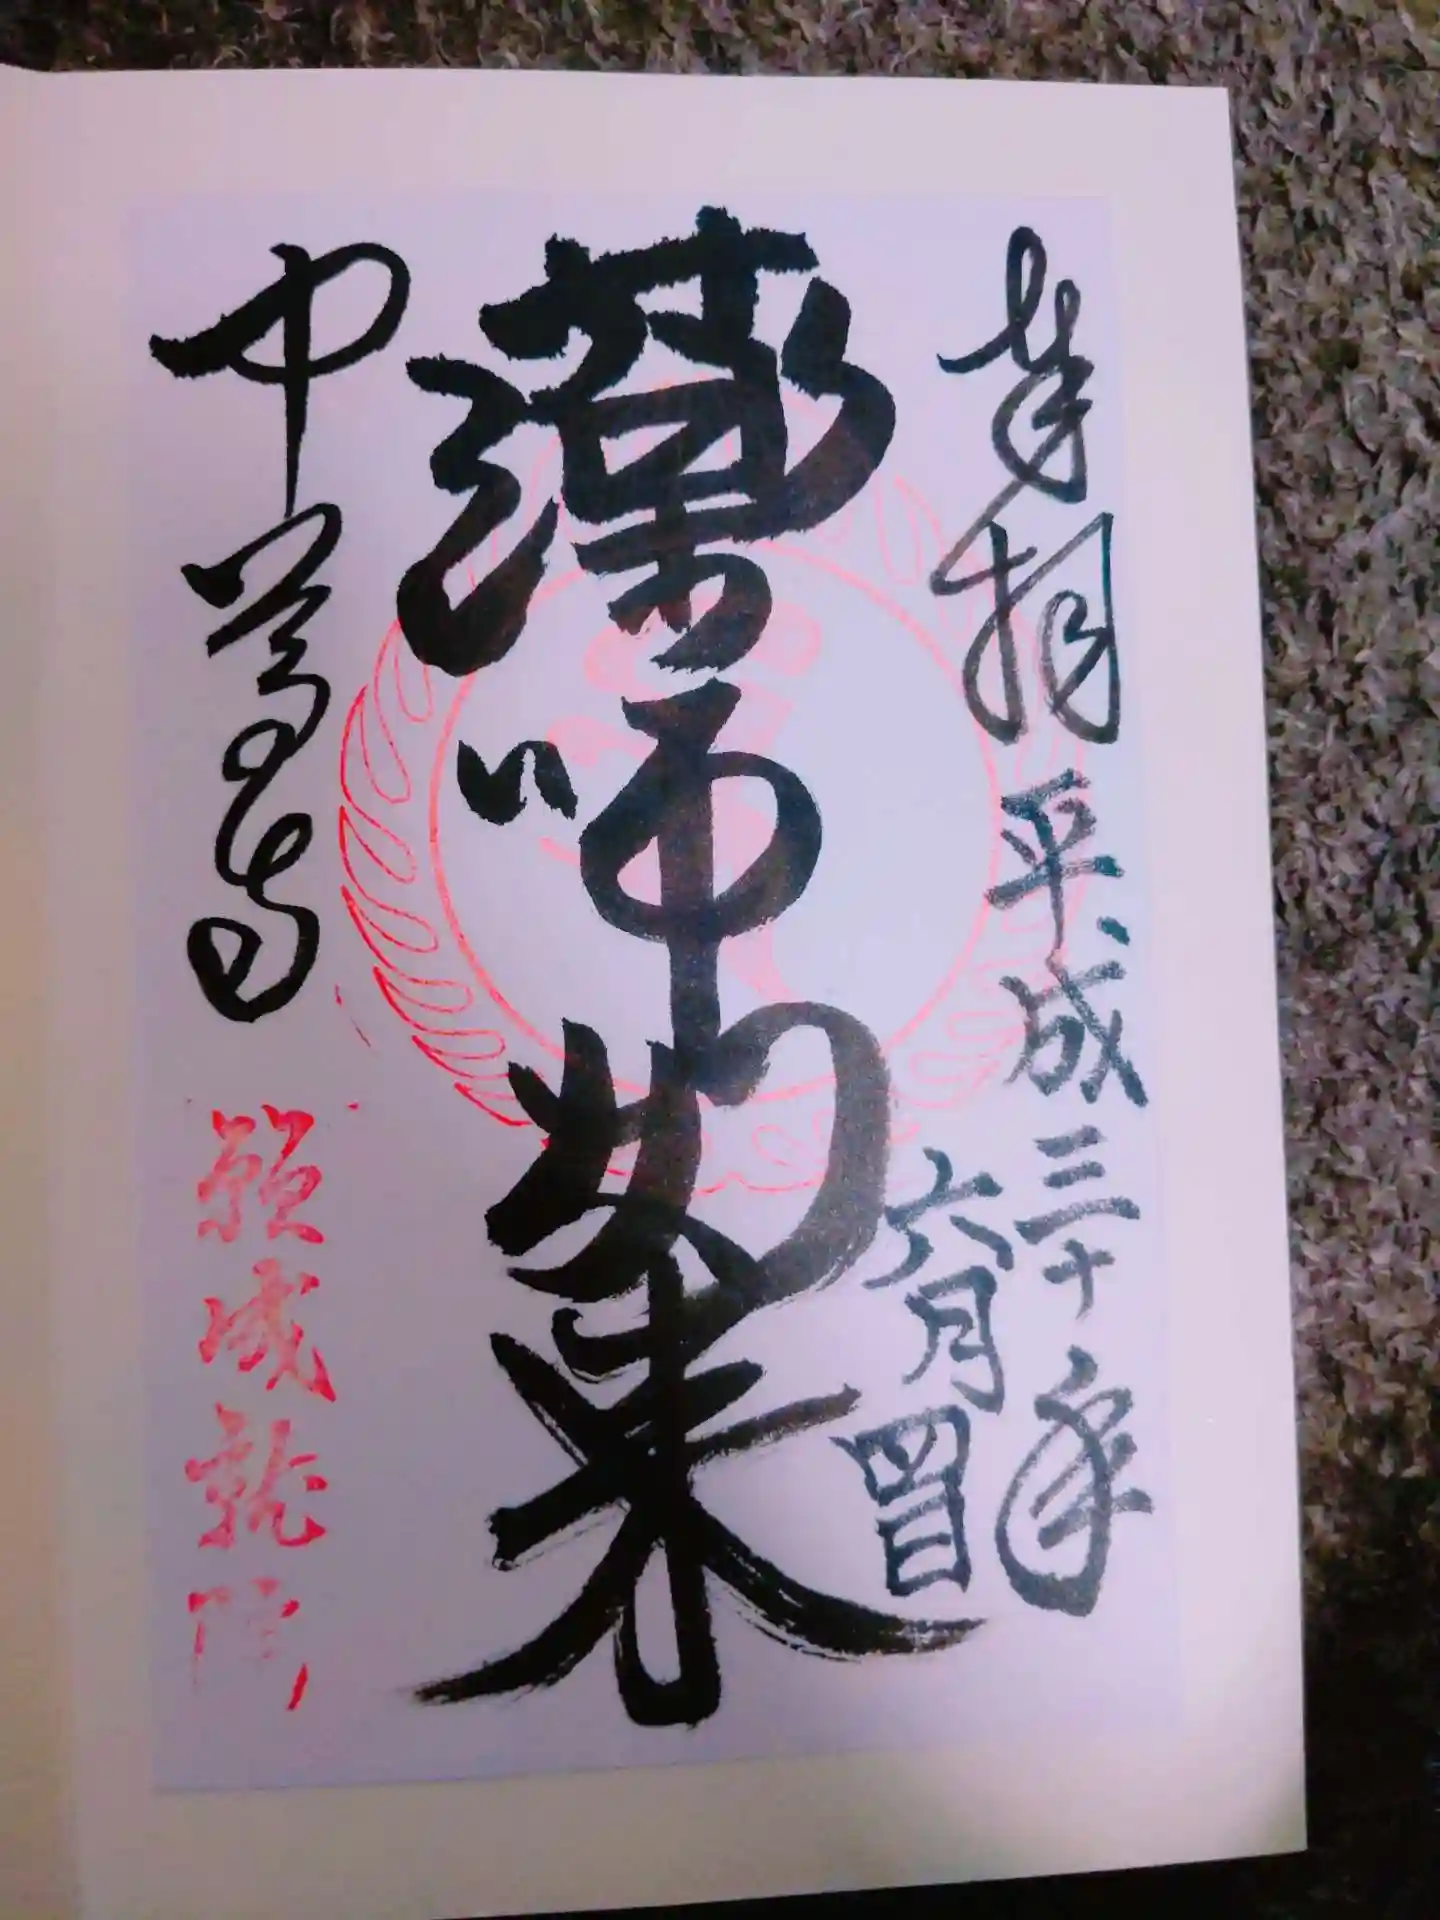 奉拝 平成三十年
六月四日
薬師如来
中尊寺
願成就院